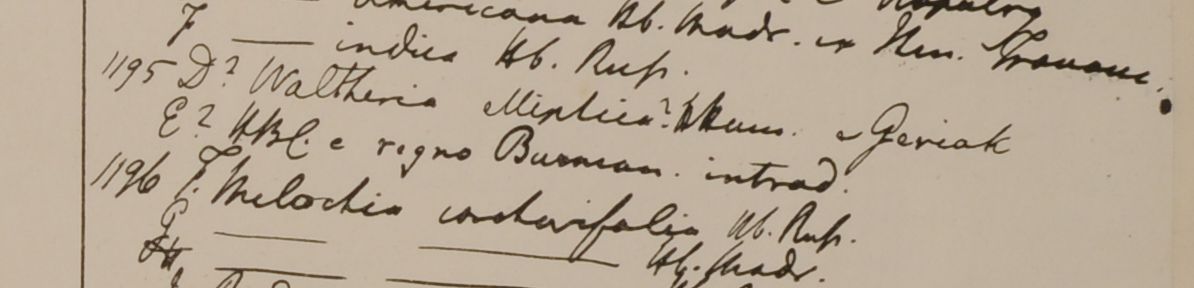 americana Hb. Madr.
7 —— indica Hb. Rup.
1195 D? Waltheria elliptica? Ham. e Geriak
E? HBC. e regno Burman. introd.
1196 F. Melochia corchorifolia Hb. Rup.
G —— —— Hb. Madr.
H —— ——